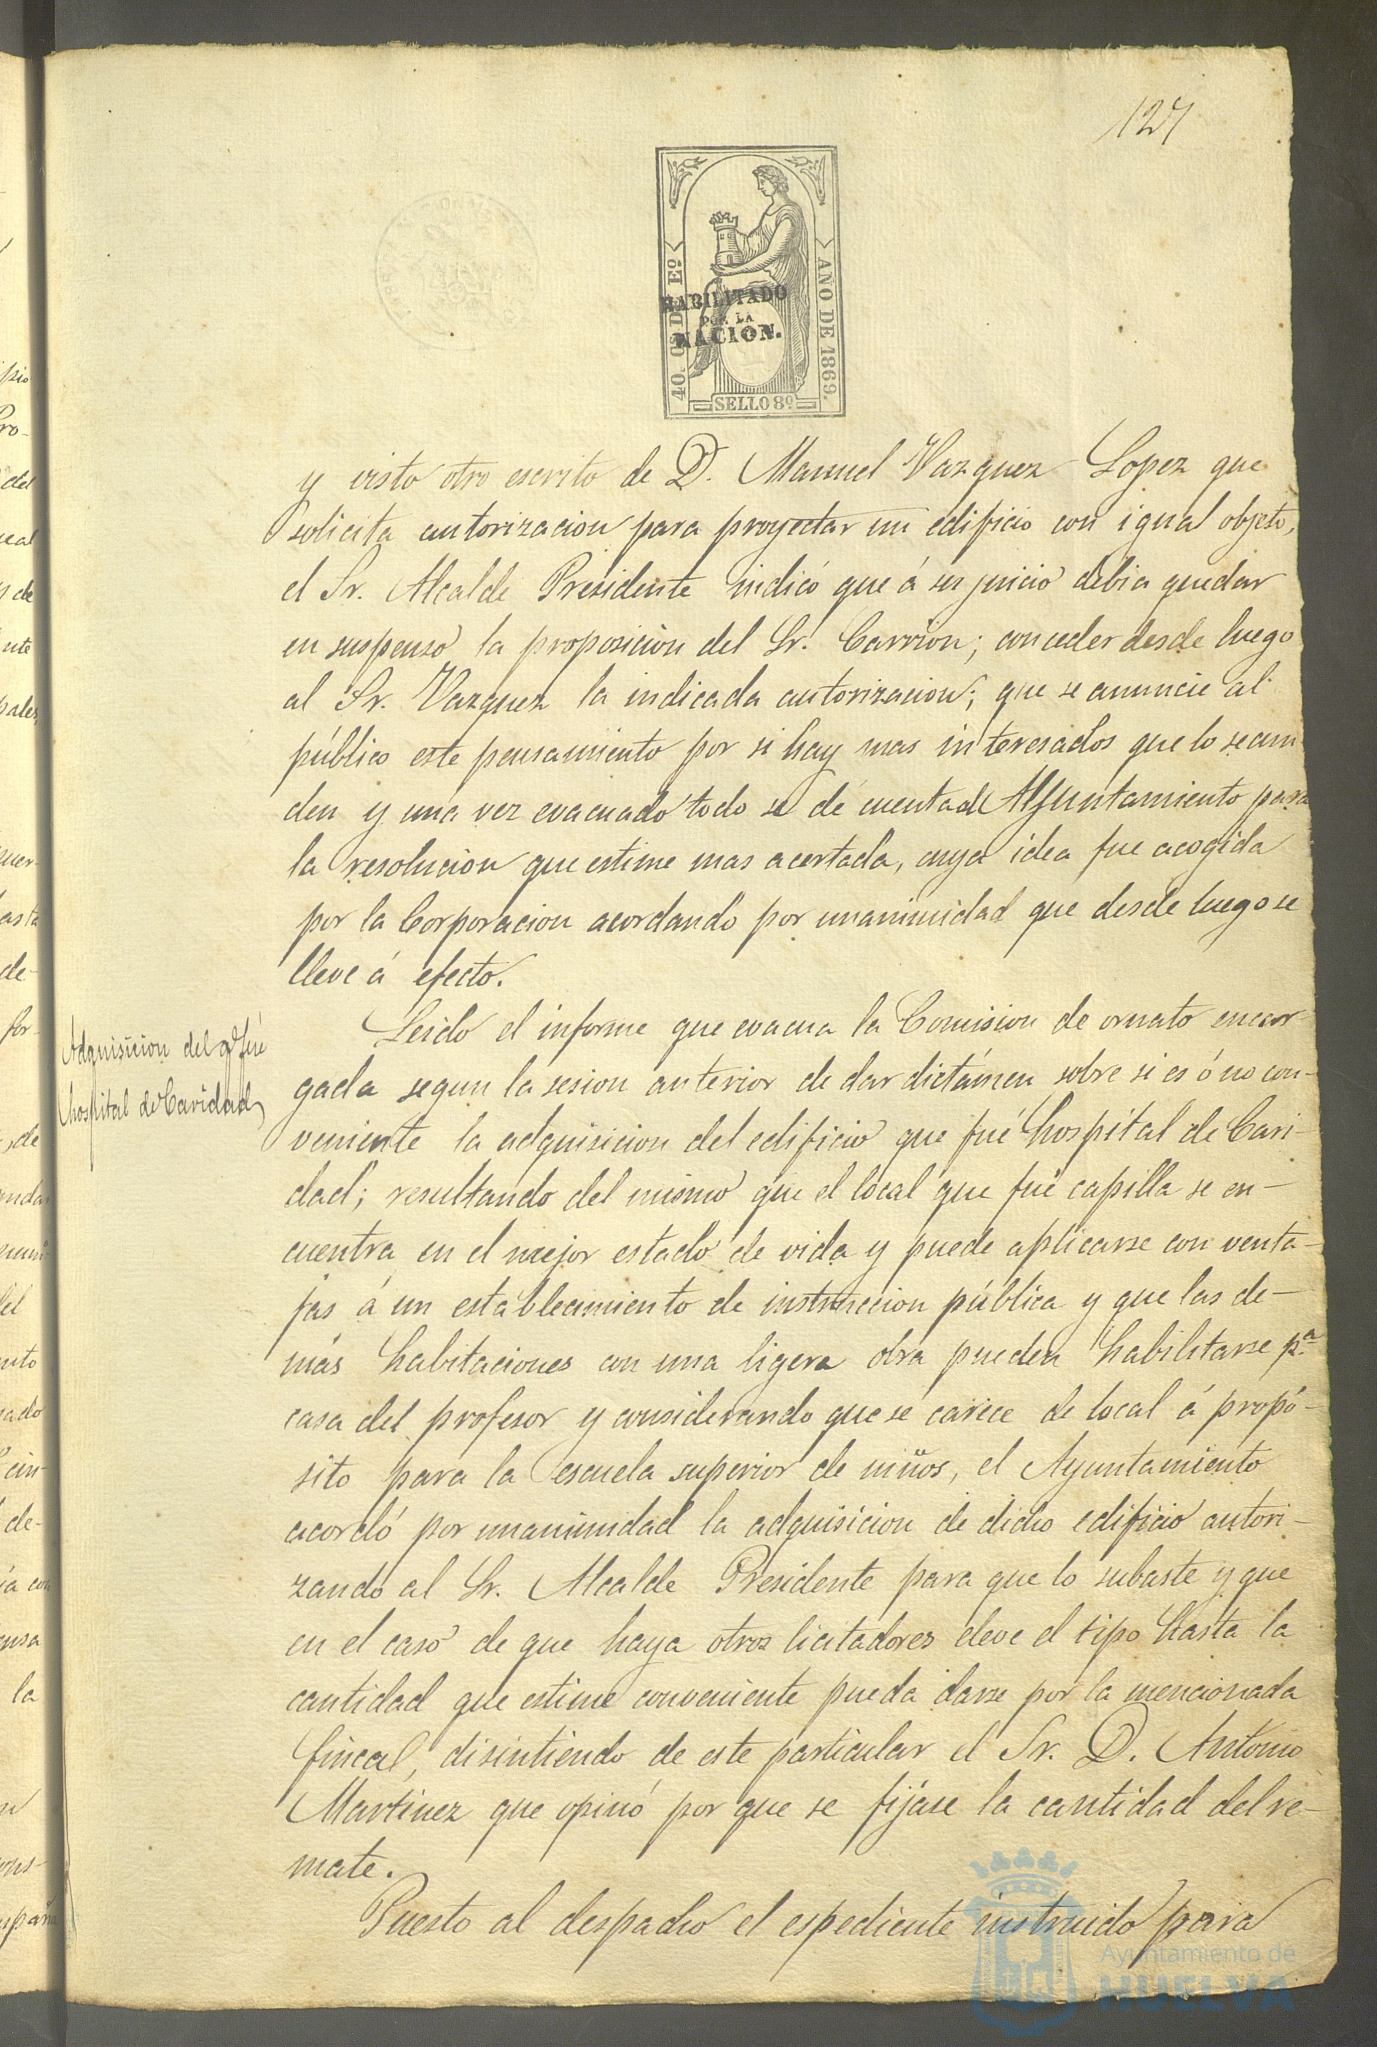 127
40. C. DE Eº
AÑO DE 1869.
HABILITADO
POR LA
NACION.
SELLO 8º
y visto otro escrito de D. Manuel Vazquez Lopez que
solicita autorizacion para proyectar un edificio con igual objeto,
el Sr. Alcalde Presidente indicó que á su juicio debia quedar
en suspenso la proposicion del Sr. Carrion; conceder desde luego
al Sr. Vazquez la indicada autorizacion; que se anuncie al
público este pensamiento por si hay mas interesados que lo secun
den y una vez evacuado todo se dé cuenta al Ayuntamiento para
la resolucion que estime mas acertada, cuya idea fue acogida
por la Corporacion acordando por unanimidad que desde luego se
lleve á efecto.
Adquisicion del q.e fué
hospital de Caridad
Leido el informe que evacua la Comision de ornato encar-
gada segun la sesion anterior de dar dictámen sobre si es ó no con-
veniente la adquisicion del edificio que fué hospital de Cari-
dad; resultando del mismo que el local que fué capilla se en-
cuentra en el mejor estado de vida y puede aplicarse con venta-
jas á un establecimiento de instruccion pública y que las de-
más habitaciones con una ligera obra pueden habilitarse p.ª
casa del profesor y considerando que se carece de local á propó-
sito para la escuela superior de niños, el Ayuntamiento
acordó por unanimidad la adquisicion de dicho edificio autori-
zando al Sr. Alcalde Presidente para que lo subaste y que
en el caso de que haya otros licitadores eleve el tipo hasta la
cantidad que estime conveniente pueda darse por la mencionada
finca, disintiendo de este particular el Sr. D. Antonio
Martinez que opinó por que se fijáse la cantidad del re-
mate.
Puesto al despacho el espediente instruido para
Ayuntamiento de
HUELVA